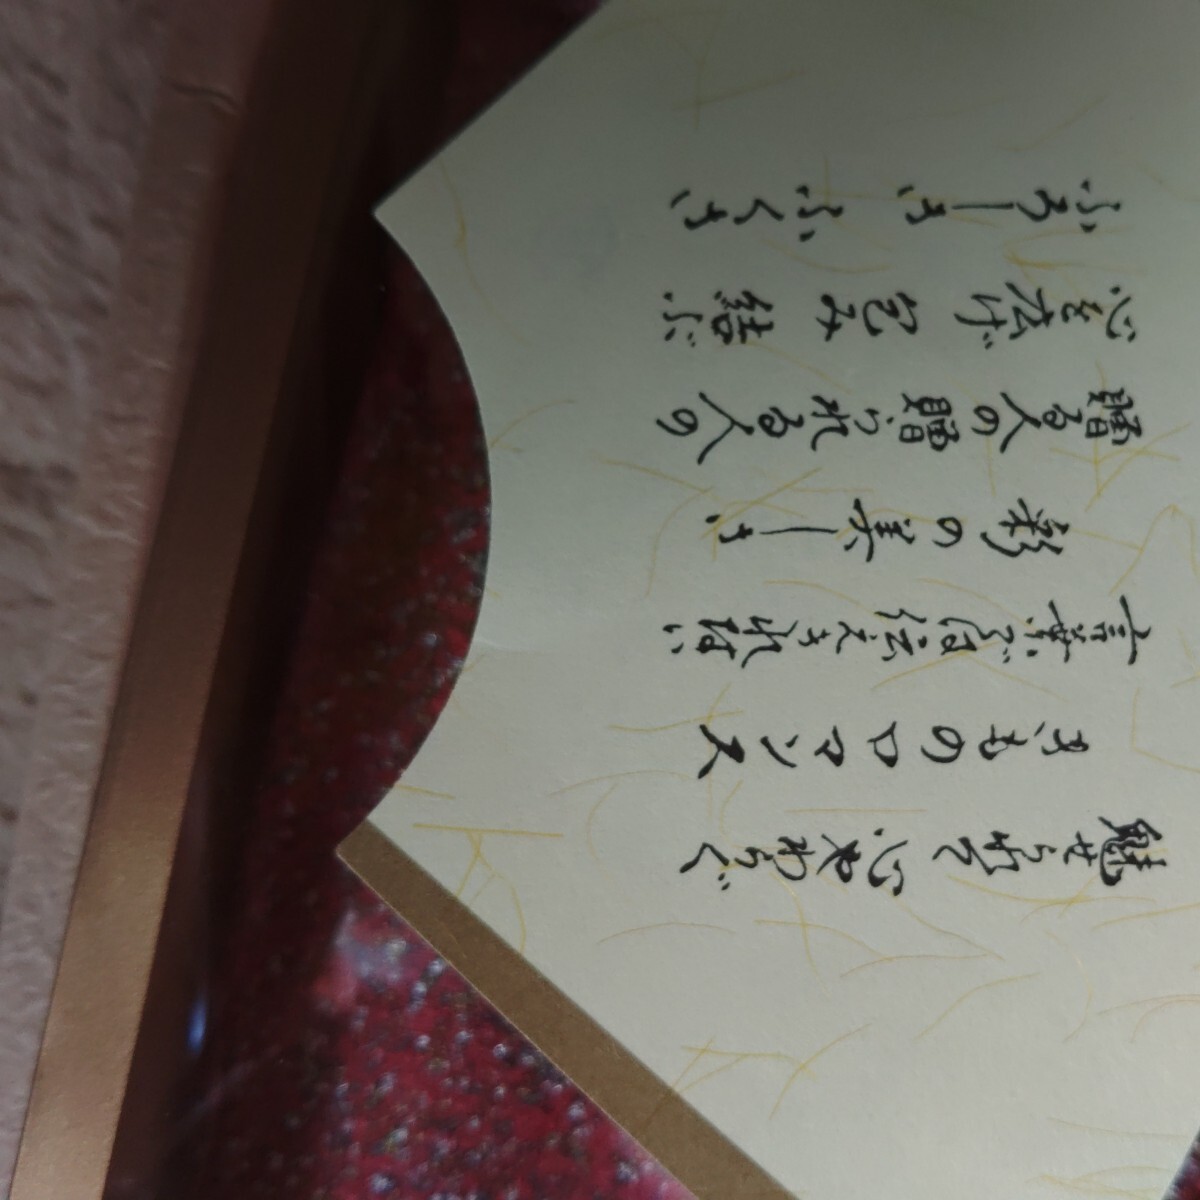 魅せられて 心やわらぐ
きものロマンス
言葉では伝えきれない
彩の美しさ
贈る人の 贈られる人の
心を広げ 包み 結ぶ
ふろしき ふくさ